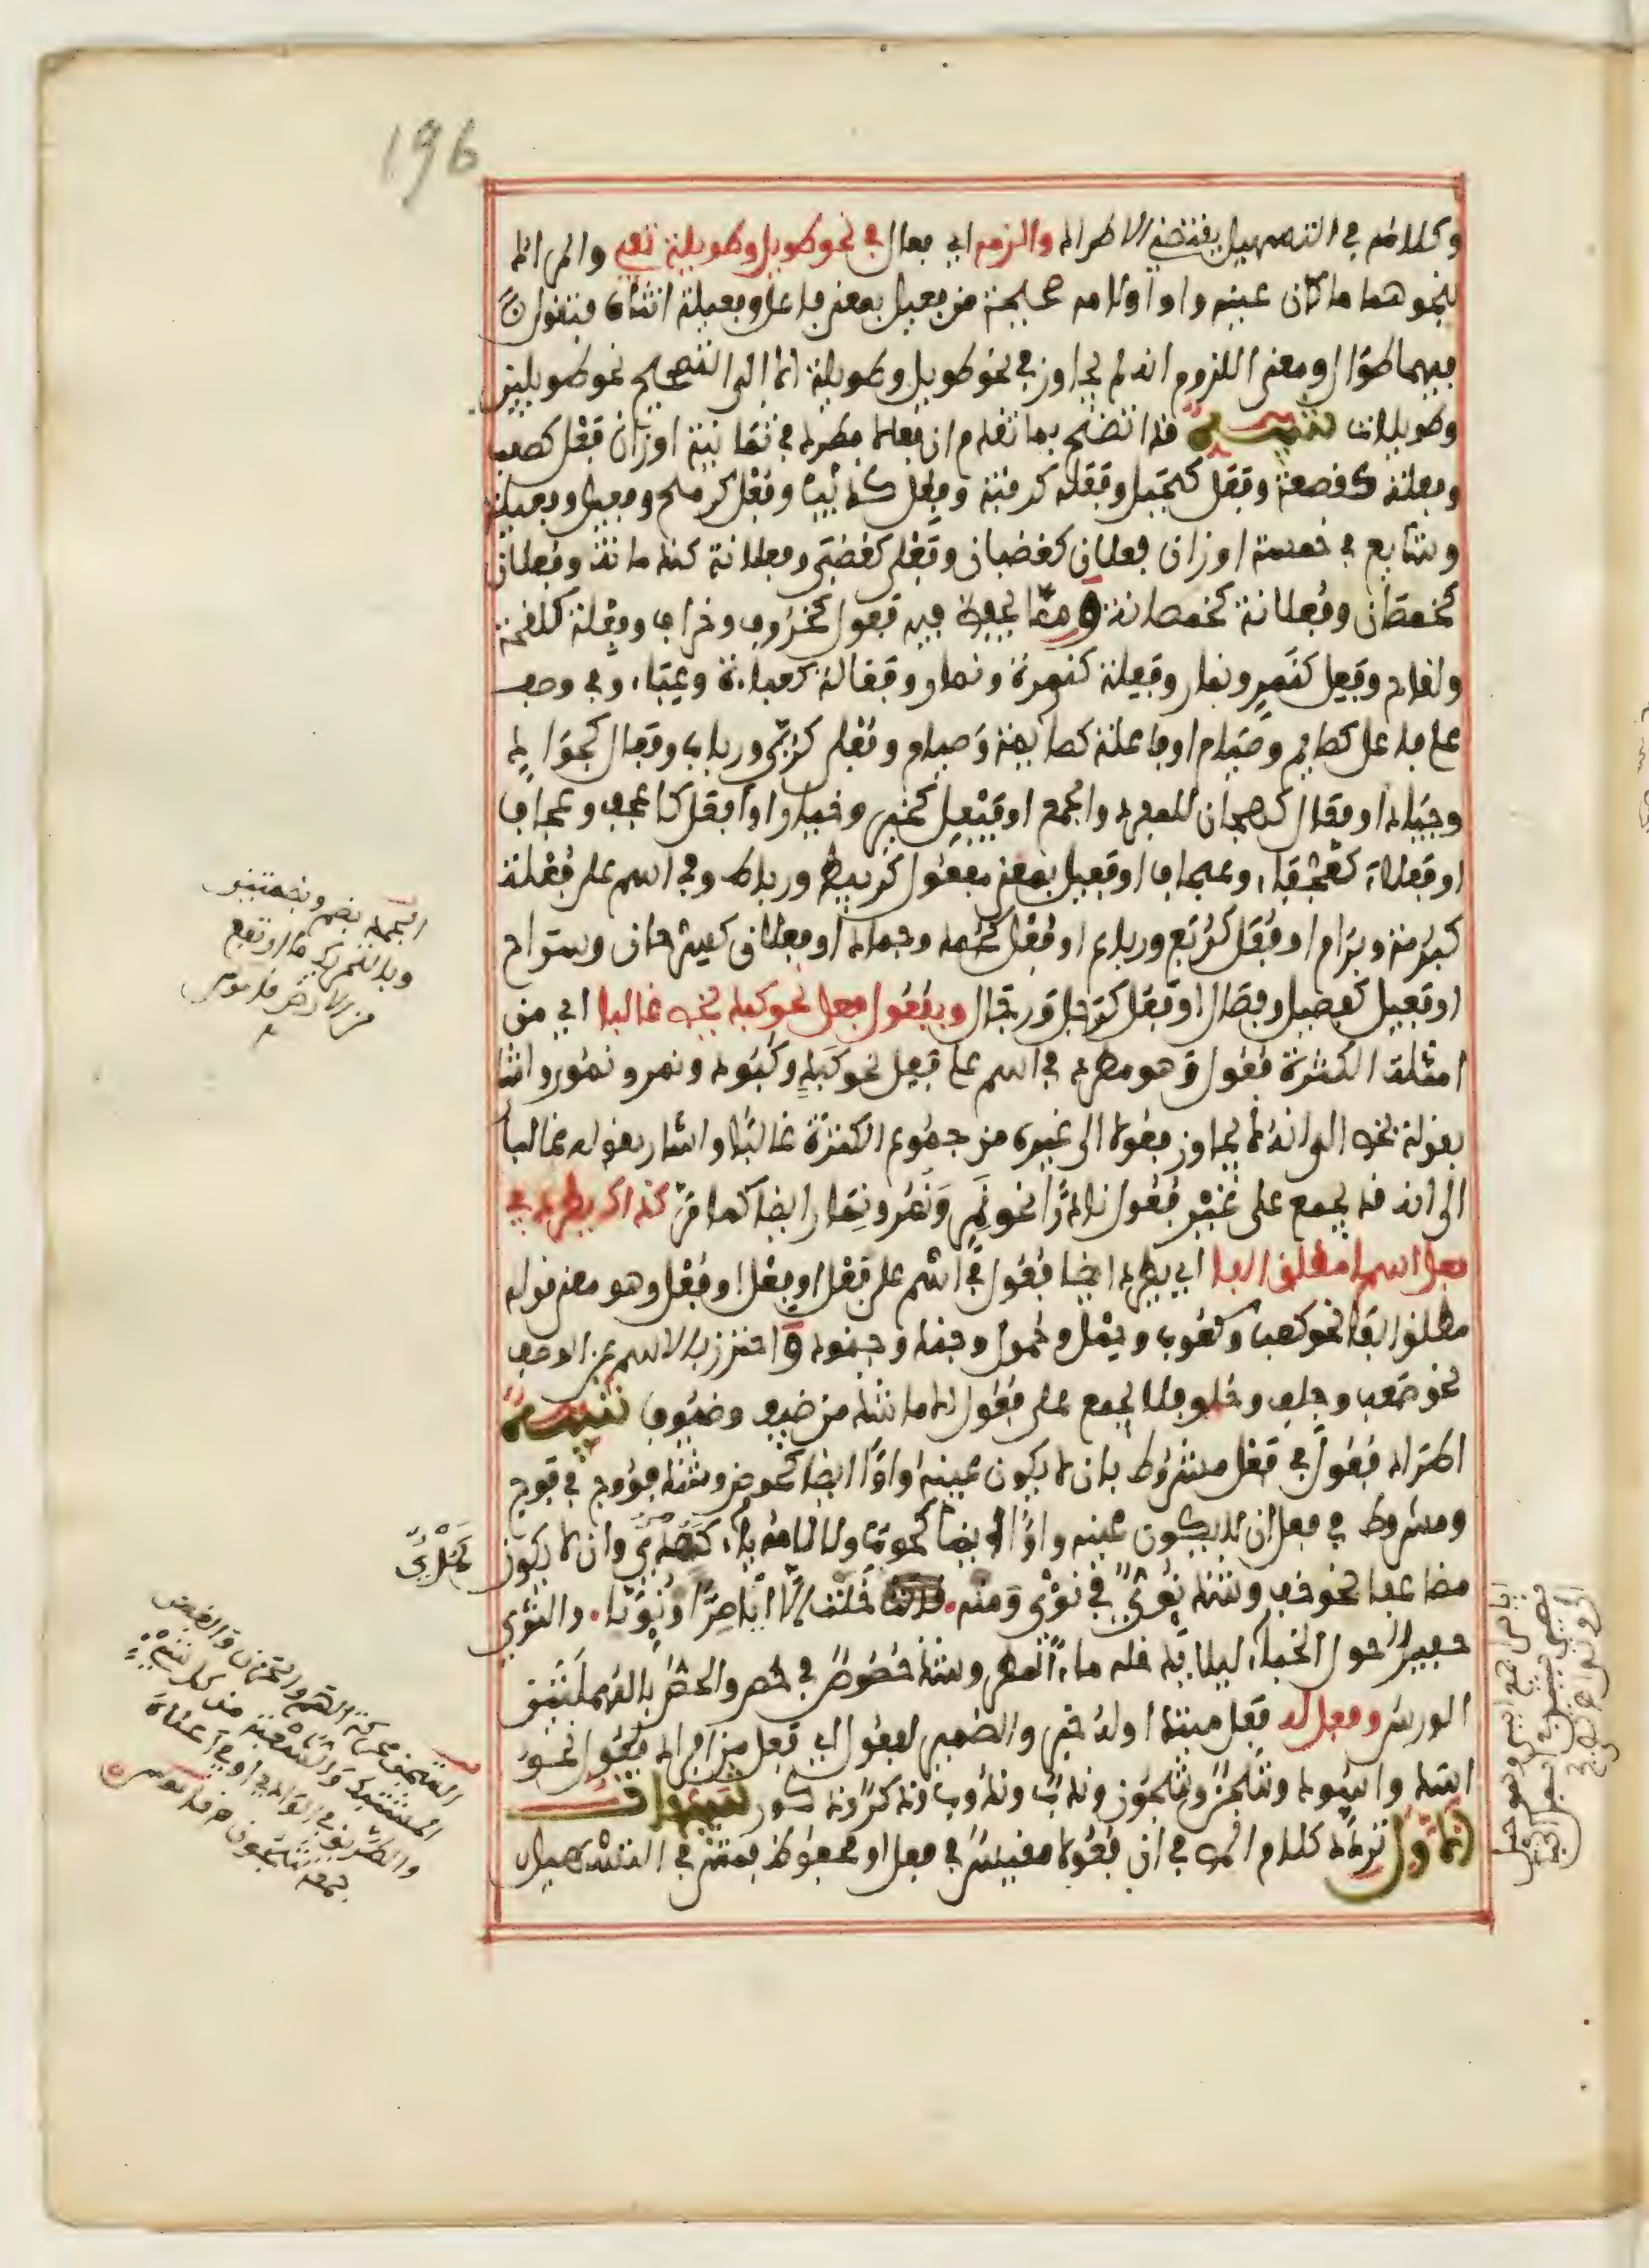 196
وكلامه في التسهيل يقتضي الاطراد والزمه اي فعال في نحو طويل وطويلة تفي والمراد
بنحوهما ما كان عينه واوا ولامه صحيحة من فعيل بمعنى فاعل وفعيلة انثاه فتقول
فيهما طوال ومعنى اللزوم انه لم يجاوز في نحو طويل وطويلة الا الى التصحيح نحو طويلين
وطويلات تنبيه قد اتضح بما تقدم ان فعالا مطرد في ثمانية اوزان فعل كصعب
وفعلة كقصعة وفعل كجبل وفعلة كرقبة وفعل كذئب وفعل كرمح وفعيل وفعيلة
وشايع في خمسة اوزان فعلان كغضبان وفعلى كغضبى وفعلانة كندمانة وفعلان
كخمصان وفعلانة كخمصانة ومما يحفظ فيه فعول كخروف وخراف وفعلة كلقحة
ولقاح وفعل كنمر ونمار وفعلة كنمرة ونمار وفعالة كعباءة وعباء وفي وصف
على فاعل كصايم وصيام او فاعلة كصايمة وصيام وفعلى كربى ورباب وفعال كجواد
وجياد او فعال كهجان للمفرد والجمع او فيعل كخير وخيار او افعل كاعجف وعجاف
او فعلاء كعجفاء وعجاف او فعيل بمعنى مفعول كربيط ورباط وفي اسم على فعلة
كبرمة وبرام او فعل كربع ورباع او فعل كجمد وجماد او فعلان كسرحان وسراح
او فعيل كفصيل وفصال او فعل كرجل ورجال وبفعول فعل نحو كبد يخص غالبا اي من
امثلة الكثرة فعول وهو مطرد في اسم على فعل نحو كبد وكبود ونمر ونمور واشار
بقوله يخص الى انه لا يجاوز فعولا الى غيره من جموع الكثرة غالبا واشار بقوله غالبا
الى انه قد يجمع على غير فعول نادرا نحو نمر ونمر ونمار ايضا كما مر كذاك يطرد في
فعل اسما مطلق الفا اي يطرد ايضا فعول في اسم على فعل او فعل او فعل وهو معنى قوله
مطلق الفا نحو كعب وكعوب وحمل وحمول وجند وجنود واحترز بالاسم عن الوصف
نحو صعب وجلف وحلو فلا يجمع على فعول الا ما شذ من ضيف وضيوف تنبيه
اطراد فعول في فعل مشروط بان لا يكون عينه واوا ايضا كحوض وشذ فووج في فوج
ومشروط في فعل ان لا يكون عينه واوا ايضا كحوت ولا لامه ياء كمدي وان لا يكون
مضاعفا نحو خف وشذ نؤي في نؤي ومنه خلت الا اياصرا او نؤيا والنؤي
حفير حول الخباء ليلا يدخله ماء المطر وشذ حصوص في حص والحص بالمهملتين
الورس وفعل له فعل مبتدا وله خبر والضمير لفعول اي فعل من افراد فعول نحو
اسد واسود وشجن وشجون وندب وندوب وذكر وذكور تنبيهات
الاول تردد كلام المص في ان فعولا مقيس في فعل او محفوظ فمشى في التسهيل
الجمد بضم وبضمتين
وبالتحريك ما ارتفع
من الارض قاموس
الشجن محركة الهم والحزن والغصن
المشتبك والشعبة من كل شيء
والطريق في الوادي او في اعلاه
جمعه شجون من قاموس